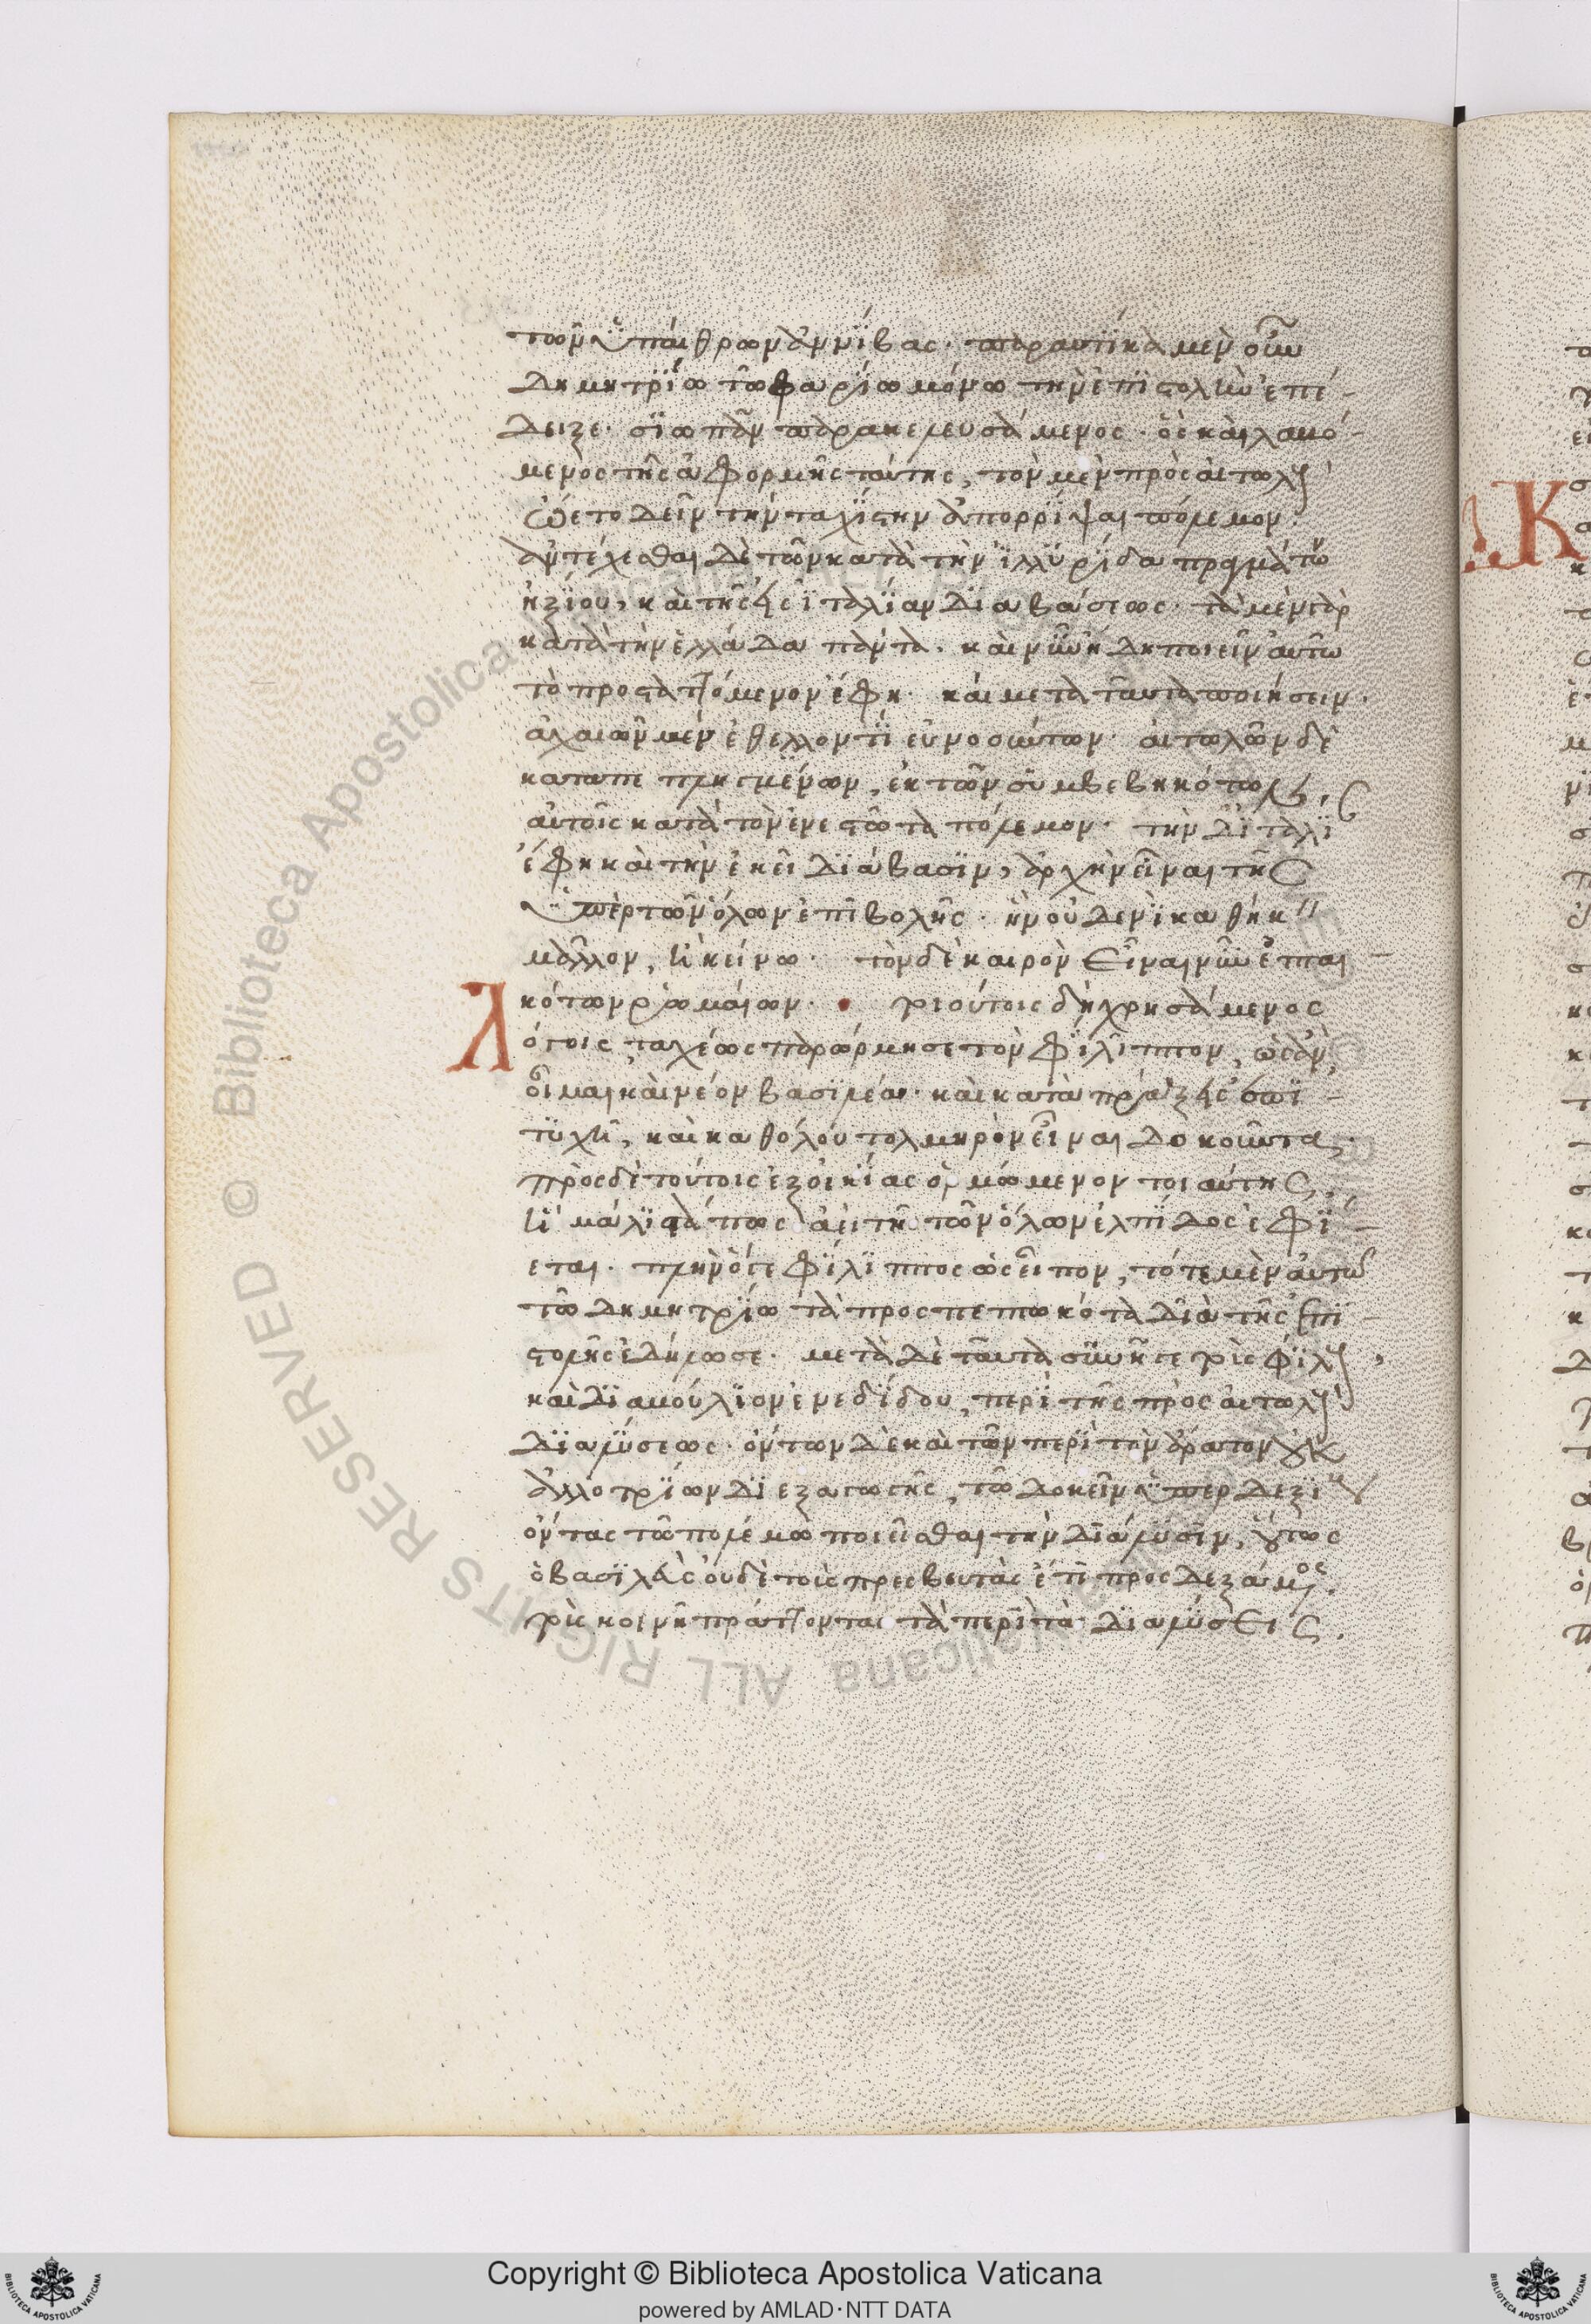 τῶν ὑπαίθρων ἀννίβας· παραυτίκα μὲν οὖν
δημητρίω τῶ φαρίω μόνω τὴν ἐπιστολὴν ἐπέ-
δειξε· σιωπᾶν παρακελευσάμενος· ὃς καὶ λαβό-
μενος τῆς ἀφορμῆς ταύτης, τὸν μὲν πρὸς αἰτωλοὺς
ὤετο δεῖν τὴν ταχίστην ἀπορρίψαι πόλεμον·
ἀντέχεσθαι δὲ τῶν κατὰ τὴν ἰλλυρίδα πραγμάτων
ἠξίου, καὶ τῆς εἰς ἰταλίαν διαβάσεως· τὰ μὲν γὰρ
κατὰ τὴν ἑλλάδα πάντα· καὶ νῦν ἤδη ποιεῖν αὐτῶ
τὸ προσταττόμενον ἔφη· καὶ μετὰ ταῦτα ποιήσειν·
ἀχαιῶν μὲν ἐθελοντὶ εὐνοούντων· αἰτωλῶν δὲ
καταπεπληγμένων, ἐκ τῶν συμβεβηκότων
αὐτοῖς κατὰ τὸν ἐνεστῶτα πόλεμον· τὴν δ' ἰταλί
ἔφη καὶ τὴν ἐκεῖ διάβασιν, ἀρχὴν εἶναι τῆς
ὑπὲρ τῶν ὅλων ἐπιβολῆς· ἣν οὐδενὶ καθήκειν
μᾶλλον, ἢ κείνω· τὸν δὲ καιρὸν εἶναι νῦν ἐπται-
κότων ῥωμαίων· τοιούτοις δὴ χρησάμενος
λόγοις ταχέως παρώρμησε τὸν φίλιππον, ὡς ἂν
οἶμαι καὶ νέον βασιλέα· καὶ κατὰ πράξεις ἐπι-
τυχῆ, καὶ καθόλου τολμηρὸν εἶναι δοκοῦντα·
πρὸς δὲ τούτοις ἐξ οἰκίας ὁρμώμενον τοιαύτης,
ἣ μάλιστά πως ἀεὶ τῆς τῶν ὅλων ἐλπίδος ἐφί-
εται· πλὴν ὅτε φίλιππος ὡς εἶπον, τότε μὲν αὐτῶ
τῶ δημητρίω τὰ προσπεπτωκότα διὰ τῆς ἐπι-
στολῆς ἐδήλωσε· μετὰ δὲ ταῦτα συνῆγε τοὺς φίλους,
καὶ διαβούλιον ἐνεδίδου, περὶ τῆς πρὸς αἰτωλοὺς
διαλύσεως· ὄντων δὲ καὶ τῶν περὶ τὸν ἄρατον οὐκ
ἀλλοτρίων διεξαγωγῆς, τῶ δοκεῖν ὑπερδεξίους
ὄντας τῶ πολέμω ποιεῖσθαι τὴν διάλυσιν, οὕτως
ὁ βασιλεὺς οὐδὲ τοὺς πρεσβευτὰς ἔτι προσδεξάμενος
τοὺς κοινῆ πράττοντας τὰ περὶ τὰς διαλύσεις.